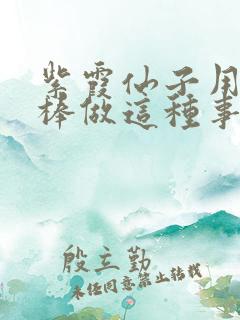 紫霞仙子用
棒做這種事
殷立勤
未經同意禁止轉載